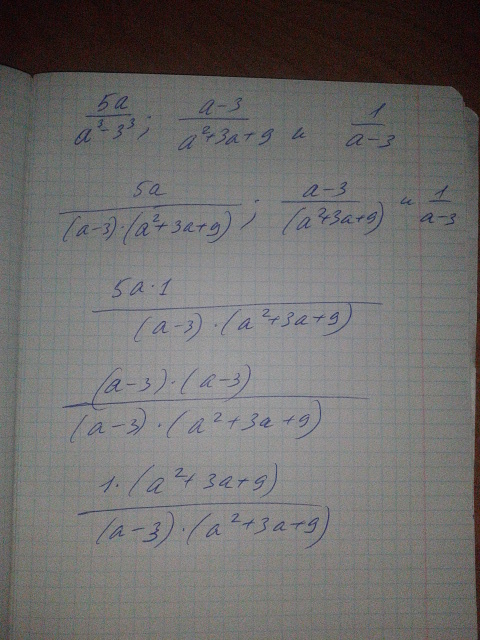 5a/(a³-3³); (a-3)/(a²+3a+9) и 1/(a-3)
5a/((a-3)·(a²+3a+9)); (a-3)/((a²+3a+9)) и 1/(a-3)
5a·1/((a-3)·(a²+3a+9))
(a-3)·(a-3)/((a-3)·(a²+3a+9))
1·(a²+3a+9)/((a-3)·(a²+3a+9))